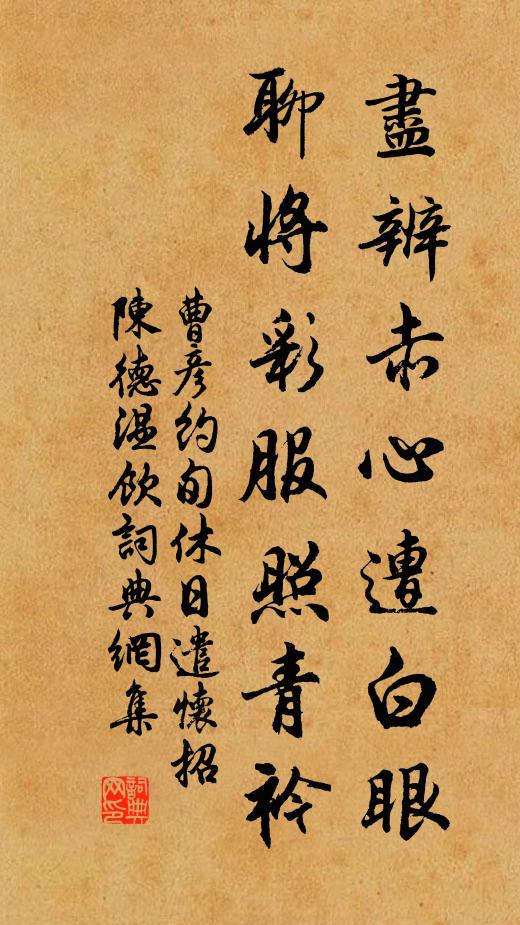 盡辨赤心遭白眼
聊將彩服照青衿
曹彦約旬休日遣懷招
陳德温飲詞典網集
詞典
网印